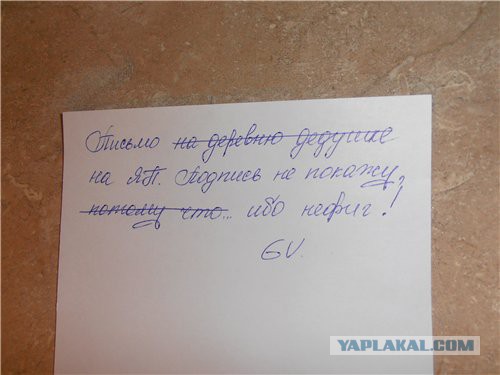 Письмо на деревню дедушке
на ЯП. Подпись не покажу,
потому что... ибо нефиг!
GV.
YAPLAKAL.COM